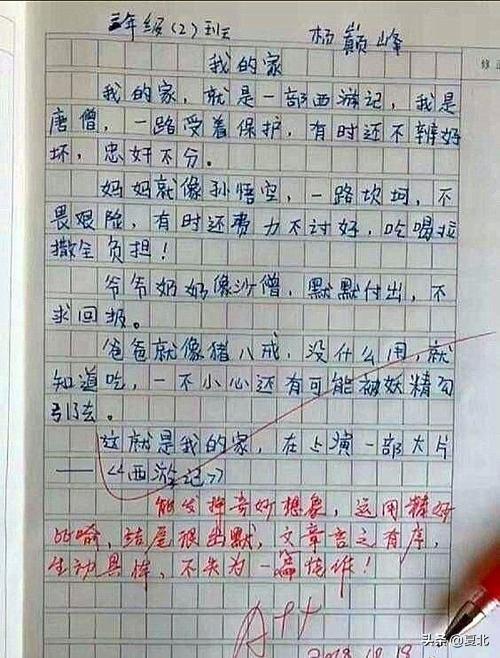 三年级(2)班 杨巅峰
修正
我的家
我的家，就是一部西游记，我是
唐僧，一路受着保护，有时还不辨好
坏，忠奸不分。
妈妈就像孙悟空，一路坎坷，不
畏艰险，有时还费力不讨好，吃喝拉
撒全负担！
爷爷奶奶像沙僧，默默付出，不
求回报。
爸爸就像猪八戒，没什么用，就
知道吃，一不小心还有可能被妖精勾
引去。
这就是我的家，在上演一部大片
——《西游记》
能发挥奇妙想象，运用精妙
的喻，结尾很幽默，文章言之有序，
生动具体，不失为一篇佳作！
A++
2018.10.19
头条@夏北